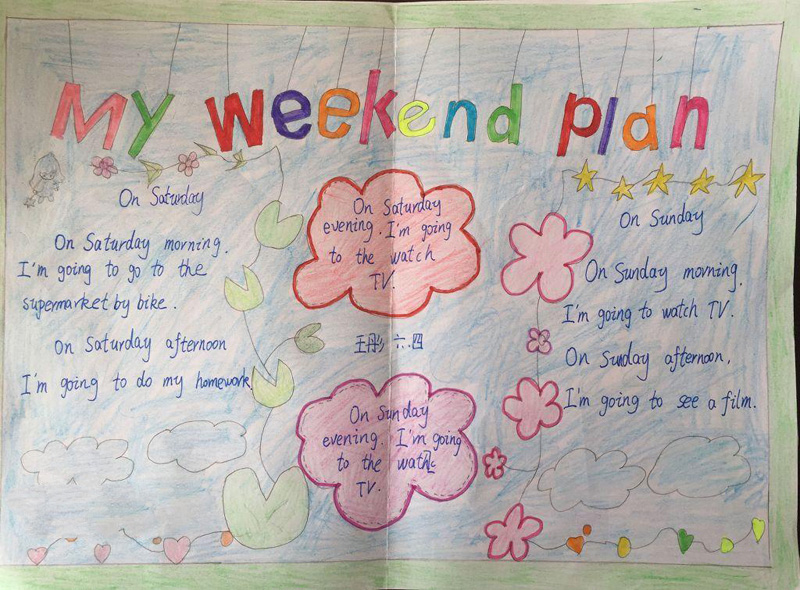 My weekend plan
On Saturday
On Saturday morning.
I'm going to go to the
supermarket by bike.
On Saturday afternoon
I'm going to do my homework
On Saturday
evening. I'm going
to the watch
TV.
王彤 六.四
On Sunday
evening. I'm going
to the watch
TV.
On Sunday
On Sunday morning.
I'm going to watch TV.
On Sunday afternoon,
I'm going to see a film.